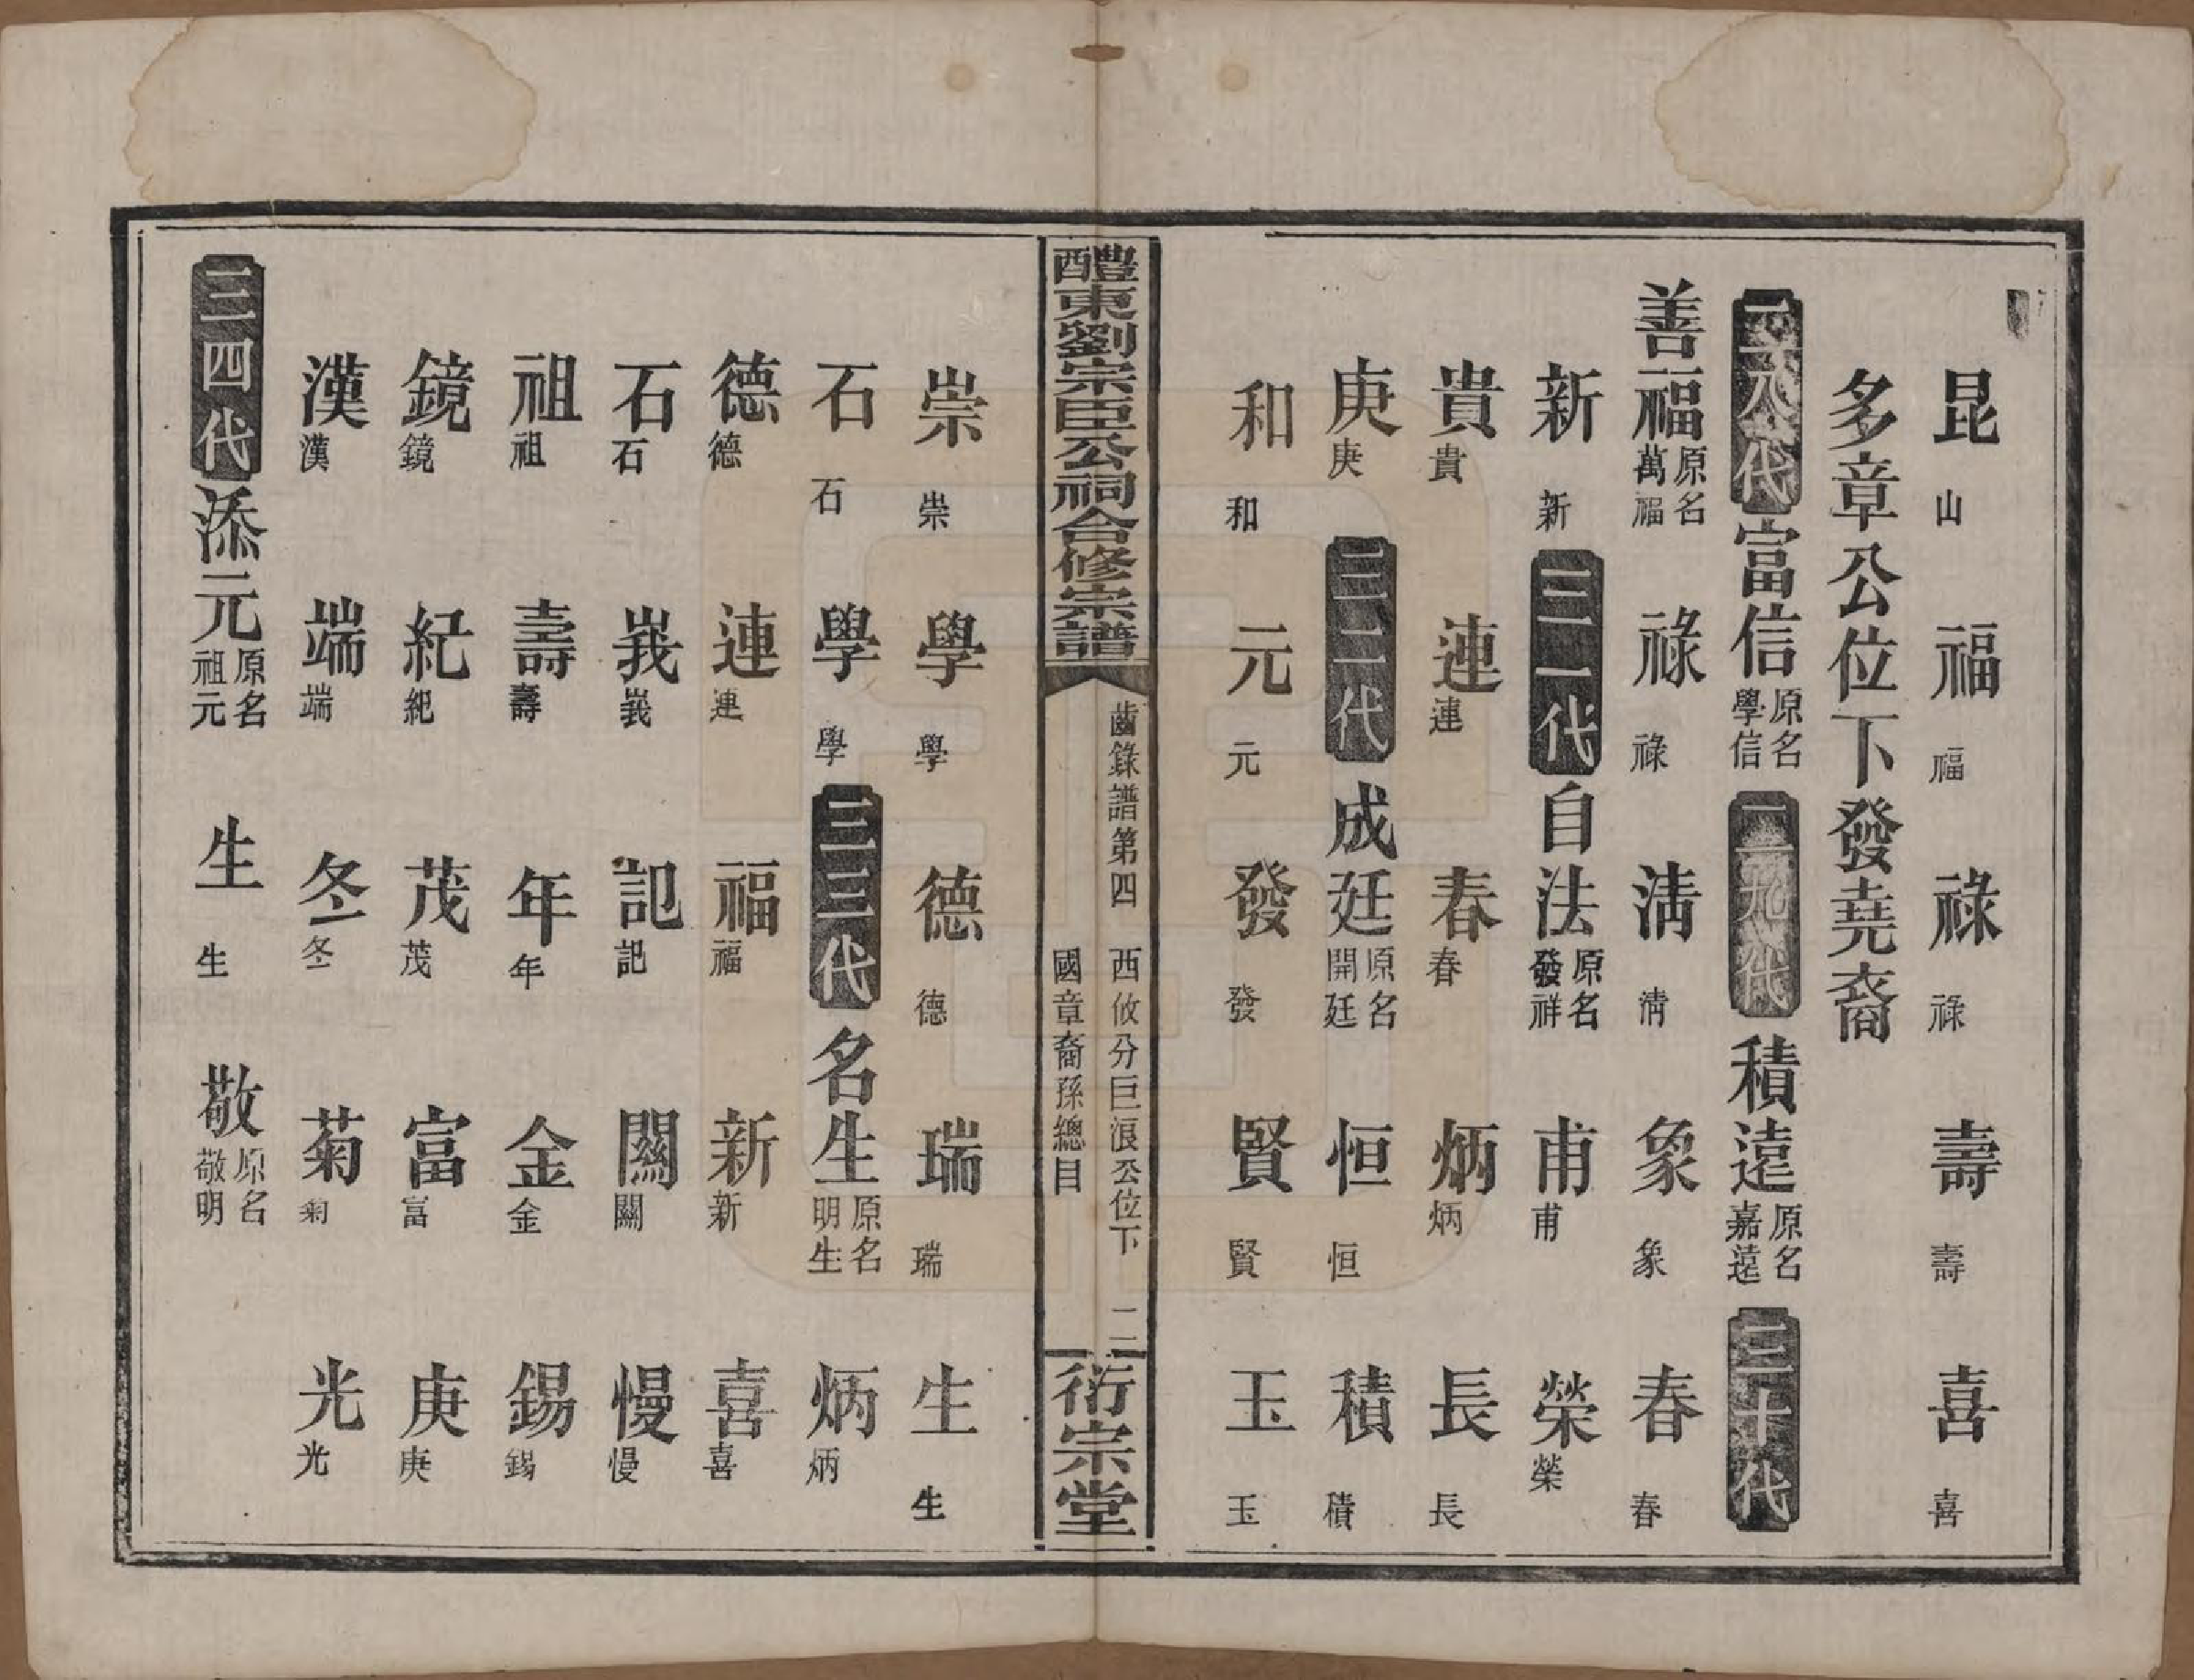 昆山 福福 祿祿 壽壽 喜喜
多章公位下發堯裔
二八代 富信原名學信 二九代 積遠原名嘉遠 三十代
善福原名萬福 祿祿 淸淸 象象 春春
新新 三一代 自法原名發祥 甫甫 榮榮
貴貴 連連 春春 炳炳 長長
庚庚 三二代 成廷原名開廷 恒恒 積積
和和 元元 發發 賢賢 玉玉
醴東劉宗臣公祠合修宗譜
齒錄譜第四 西攸分巨浪公位下 二
國章裔孫總目
衍宗堂
崇崇 學學 德德 瑞瑞 生生
石石 學學 三三代 名生原名明生 炳炳
德德 連連 福福 新新 喜喜
石石 峩峩 記記 關關 慢慢
祖祖 壽壽 年年 金金 錫錫
鏡鏡 紀紀 茂茂 富富 庚庚
漢漢 端端 冬冬 菊菊 光光
三四代 添元原名祖元 生生 敬原名敬明